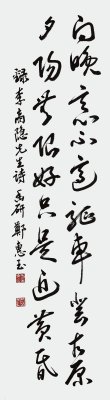 向晚意不适驱车登古原
夕阳无限好只是近黄昏
录李商隐先生诗 郑惠玉